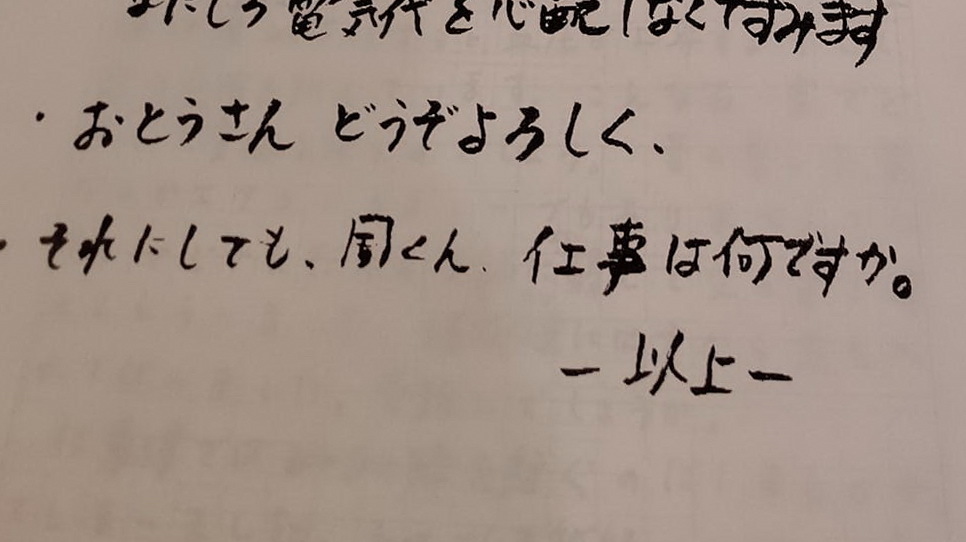 わたしの電気代を心配しなくてすみます
・おとうさん どうぞよろしく、
・それにしても、周くん、仕事は何ですか。
ー以上ー